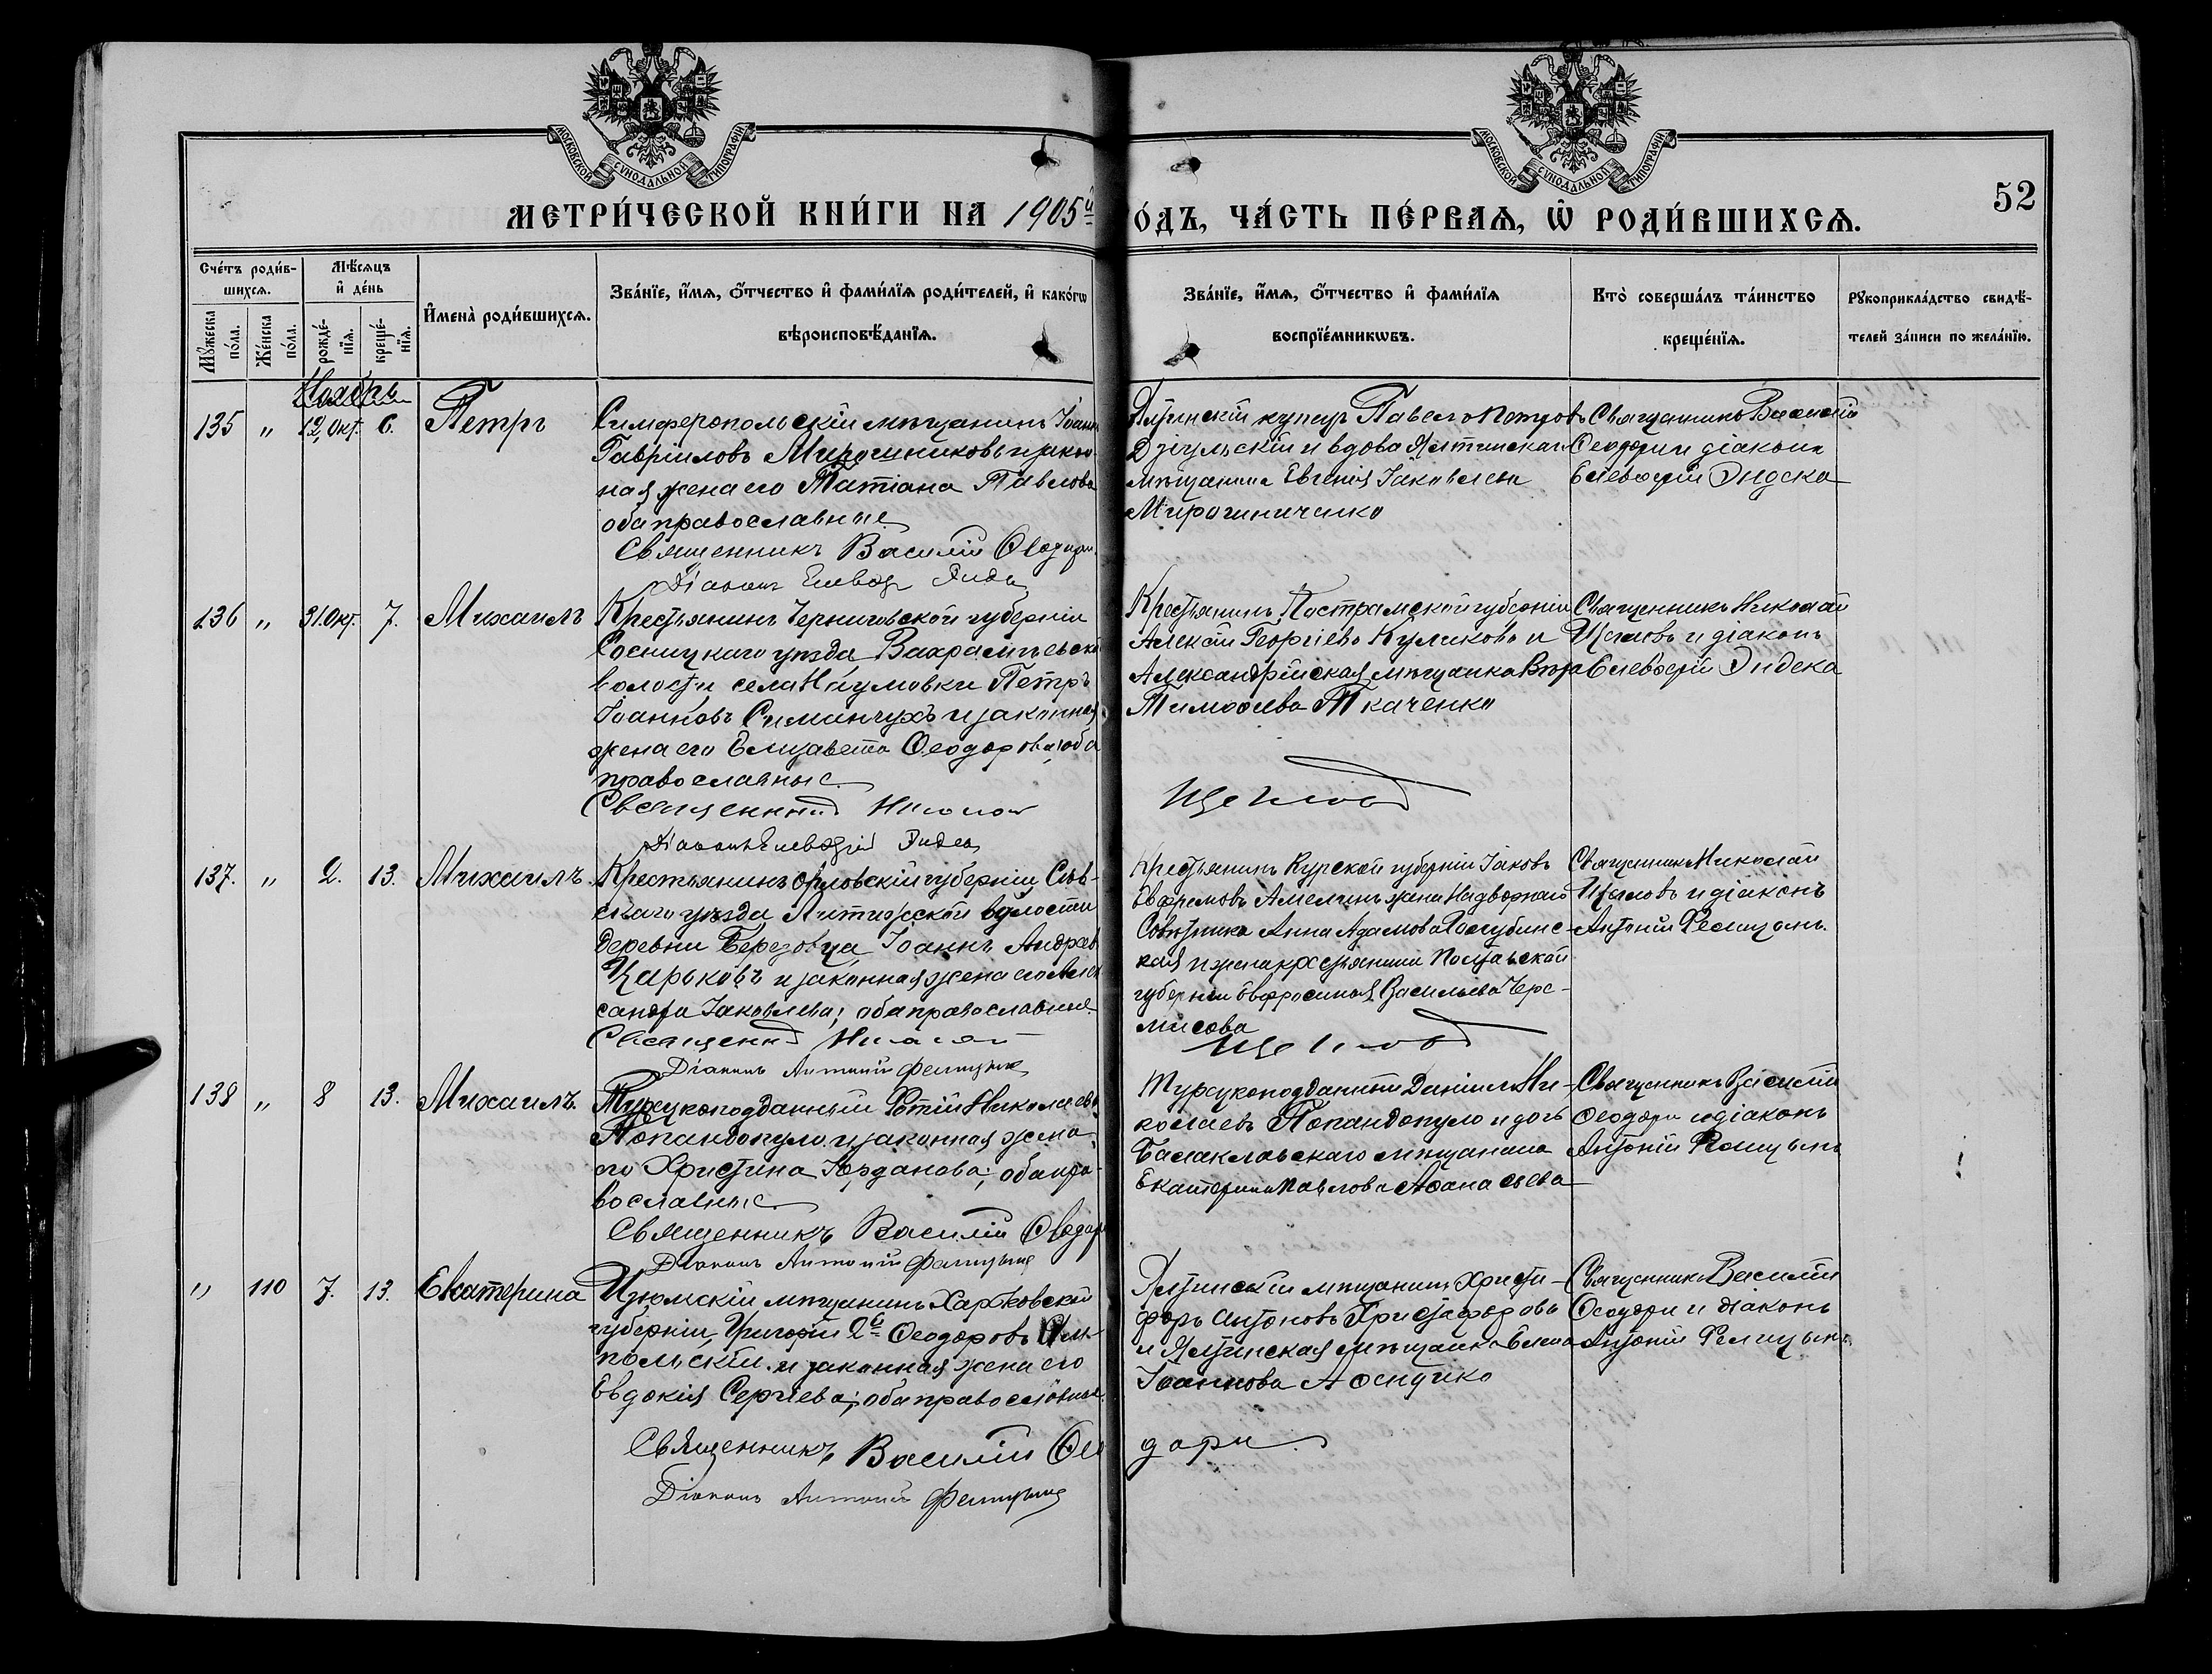 МОСКОВСКОЙ СѴНОДАЛЬНОЙ ТИПОГРАФІИ
МОСКОВСКОЙ СѴНОДАЛЬНОЙ ТИПОГРАФІИ
52
МЕТРИ́ЧЕСКОЙ КНИ́ГИ НА 1905й
О́ДЪ, ЧА́СТЬ ПЕ́РВАѦ, Ѿ РОДИ́ВШИХСѦ.
Сче́тъ роди́в-
шихсѧ.
Мꙋ́жеска по́ла.
Же́нска по́ла.
Мѣ́сѧцъ
и҆ де́нь
рожде́-
нїѧ.
креще́-
нїѧ.
И҆мена̀ роди́вшихсѧ.
Зва́нїе, и҆́мѧ, ѻ҆́тчество и҆ фами́лїѧ роди́телей, и҆ како́гѡ
вѣроисповѣ́данїѧ.
Зва́нїе, и҆́мѧ, ѻ҆́тчество и҆ фами́лїѧ
воспрїе́мникѡвъ.
Кто̀ соверша́лъ та́инство
креще́нїѧ.
Рꙋкоприкла́дство свидѣ́-
телей за́писи по жела́нїю.
Ноябрь
135 " 12, Окт. 6. Петръ
Симферопольскій мѣщанинъ Іоаннъ
Гавріиловъ Мирошниковъ и закон-
ная жена его Татіана Павлова
оба православные
Священникъ Василій Ѳеодори
Діаконъ Елевѳ Эндека
Ялтинскій купецъ Павелъ Петровъ
Дзіульскій и вдова Ялтинскаго
мѣщанина Евгенія Іаковлева
Мирошниченко
Священникъ Василій
Ѳеодори и діаконъ
Елевѳерій Эндека
136 " 31 Окт. 7. Михаилъ
Крестьянинъ Черниговской губерніи
Сосницкаго уѣзда Вахрамѣевской
волости села Наумовки Петръ
Іоанновъ Симанчухъ и законная
жена его Елизавета Ѳеодорова, оба
православные
Священникъ Николай
Діаконъ Елевѳерій Эндека
Крестьянинъ Костромской губерніи
Алексѣй Георгіевъ Куликовъ и
Александрійская мѣщанка Вѣра
Тимоѳеева Ткаченко
Щегловъ
Священникъ Николай
Щегловъ и діаконъ
Елевѳерій Эндека
137. " 2. 13. Михаилъ.
Крестьянинъ Орловскій губерніи, Сѣв-
скаго уѣзда Литижской волости
деревни Березовца, Іоаннъ Андреев
Царьковъ и законная жена его Алек
сандра Іаковлева; оба православные
Священникъ Николай
Діаконъ Антоній Фелицынъ
Крестьянинъ Курской губерніи Іаковъ
Евфремовъ Амелинъ, жена Надворнаго
Совѣтника Анна Адамова Погубинс-
кая и жена крестьянина Полтавской
губерніи Евфросинія Васильева Чере-
мисова
Щегловъ
Священникъ Николай
Щегловъ и діаконъ
Антоній Фелицынъ.
138 " 8 13. Михаилъ.
Турецкоподданный Фотій Николаевъ
Попандопуло и законная жена
его Христина Іорданова; оба пра-
вославные
Священникъ Василій Ѳеодори
Діаконъ Антоній Фелицынъ
Турецкоподданный Даніилъ Ни-
колаевъ Попандопуло и дочь
Балаклавскаго мѣщанина
Екатерина Павлова Аѳанасьева
Священникъ Василій
Ѳеодори и діаконъ
Антоній Фелицынъ
" 110 7. 13. Екатерина
Изюмскій мѣщанинъ Харьковской
губерніи, Григорій 2й Ѳеодоровъ
польскій и законная жена его
Евдокія Сергіева; оба православные.
Священникъ Василій Ѳео
дори
Діаконъ Антоній Фелицынъ
Ялтинскій мѣщанинъ Христо-
форъ Антоновъ Христофоровъ
и Ялтинская мѣщанка Елена
Іоаннова
Священникъ Василій
Ѳеодори и діаконъ
Антоній Фелицынъ.